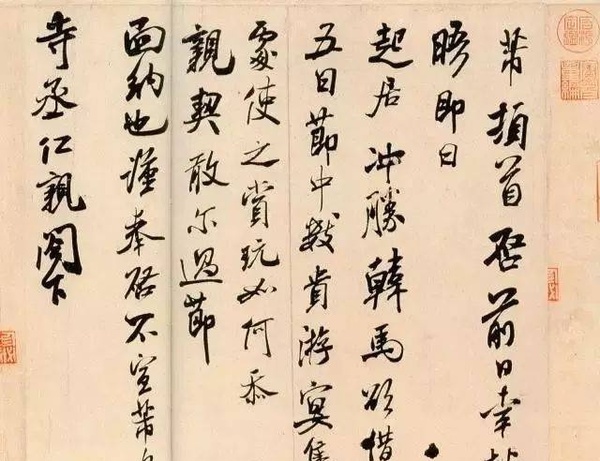 芾頓首啓前日幸
晤即日
起居冲勝韓馬欲借
五日節中數貴游宴集
處使之賞玩如何忝
親契敢尔過節
面納也謹奉啓不宣芾
寺丞仁親閤下